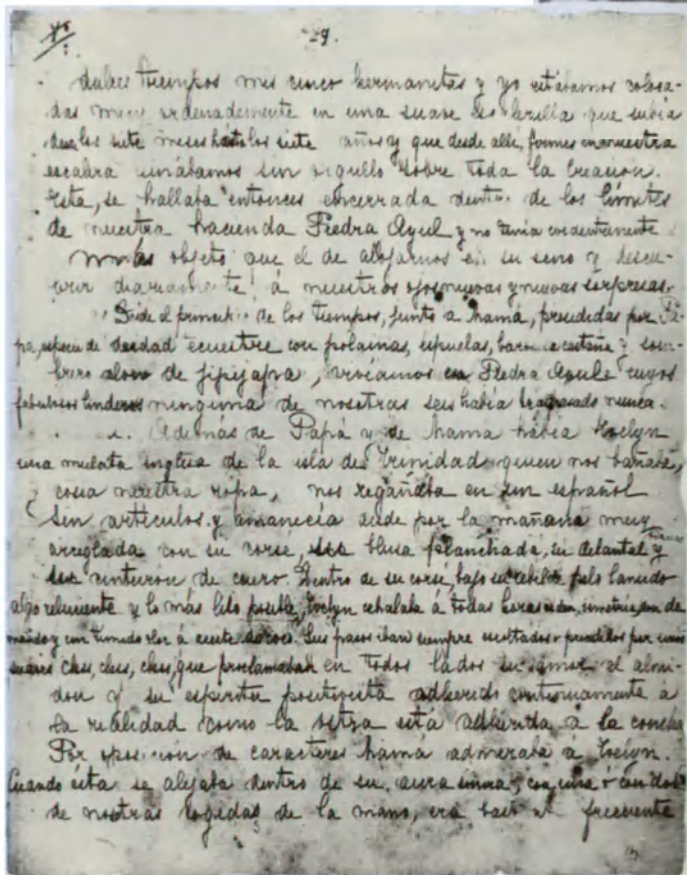 29.
dulces tiempos mis cinco hermanitas y yo estábamos coloca-
das muy ordenadamente en una suave escalerilla que subía
desde los siete meses hasta los siete años y que desde allí, formes en nuestra
escalera reinábamos sin orgullo sobre toda la Creación.
Esta, se hallaba entonces encerrada dentro de los límites
de nuestra hacienda Piedra Azul y no tenía evidentemente
más objeto que el de alojarnos en su seno y descu-
brir diariamente á nuestros ojos nuevas y nuevas sorpresas.
Desde el principio de los tiempos, junto a Mamá, presididas por Pa-
pá, especie de deidad ecuestre con polainas, espuelas, barba castaña y som-
brero alón de jipijapa, vivíamos en Piedra Azul cuyos
fabulosos linderos ninguna de nosotras seis había traspasado nunca.
Además de Papá y de Mamá había Evelyn
una mulata inglesa de la isla de Trinidad quien nos bañaba,
cosía nuestra ropa, nos regañaba en un español
sin artículos y amanecía desde por la mañana muy
arreglada con su corsé, su blusa planchada, su delantal y
su cinturón de cuero. Dentro de su corsé, bajo su rebelde pelo lanudo
algo reluciente y lo más liso posible, Evelyn exhalaba á todas horas orden, simetría, don de
mando y un tímido olor á aceite de coco. Sus pasos iban siempre escoltados o precedidos por unos
suaves chss, chss, chss, que proclamaban en todos lados su amor al almi-
dón y su espíritu positivista adherido continuamente á
la realidad como la ostra está adherida á la concha.
Por oposición de caracteres Mamá admiraba a Evelyn.
Cuando ésta se alejaba dentro de su aura sonora, con una o con dos
de nosotras cogidas de la mano, era frecuente